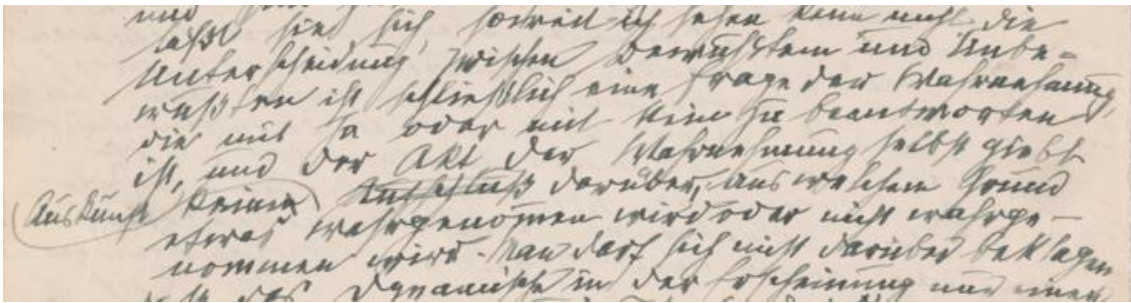 läßt sie sich, soweit ich sehen kann nicht. Die
Unterscheidung zwischen Bewußtem und Unbe-
wußten ist schließlich eine Frage der Wahrnehmung,
die mit Ja oder mit Nein zu beantworten
ist, und der Akt der Wahrnehmung selbst giebt
Auskunft keine Aufschluß darüber, aus welchem Grund
etwas wahrgenommen wird oder nicht wahrge-
nommen wird. Man darf sich nicht darüber beklagen
das Dynamische in der Erscheinung nur einen